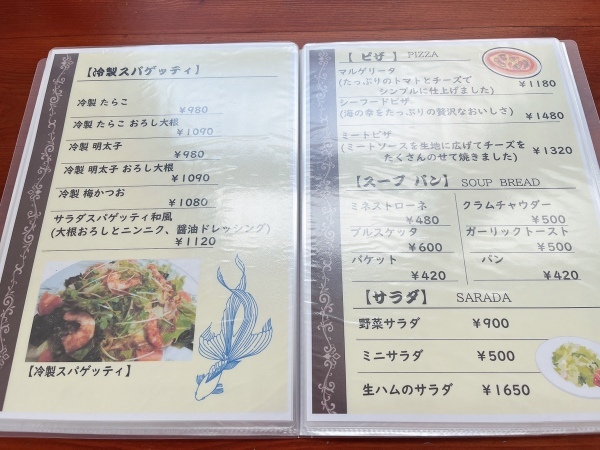 【冷製スパゲッティ】
冷製 たらこ
¥980
冷製 たらこ おろし大根
¥1090
冷製 明太子
¥980
冷製 明太子 おろし大根
¥1090
冷製 梅かつお
¥1080
サラダスパゲッティ和風
(大根おろしとニンニク、醤油ドレッシング)
¥1120
【冷製スパゲッティ】
【 ピザ 】 PIZZA
マルゲリータ
(たっぷりのトマトとチーズで
シンプルに仕上げました) ¥1180
シーフードピザ
(海の幸をたっぷりの贅沢なおいしさ) ¥1480
ミートピザ
(ミートソースを生地に広げてチーズを
たくさんのせて焼きました) ¥1320
【スープ パン】 SOUP BREAD
ミネストローネ クラムチャウダー
¥480 ¥500
ブルスケッタ ガーリックトースト
¥600 ¥500
バケット パン
¥420 ¥420
【サラダ】 SARADA
野菜サラダ ¥900
ミニサラダ ¥500
生ハムのサラダ ¥1650